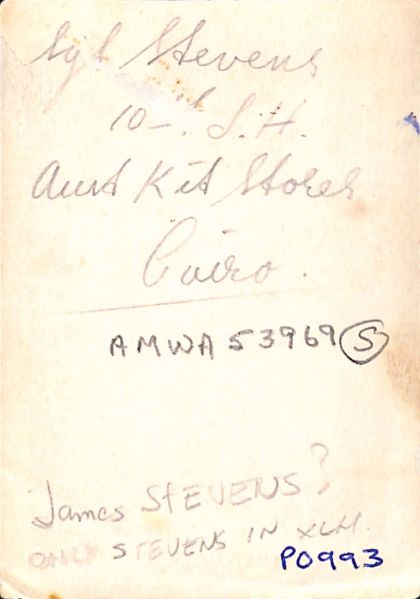 Sgt Stevens
10-. L.H.
Aust Kit Stores
Cairo.
AMWA 53969 S
James STEVENS?
ONLY STEVENS IN XLH.
P0993